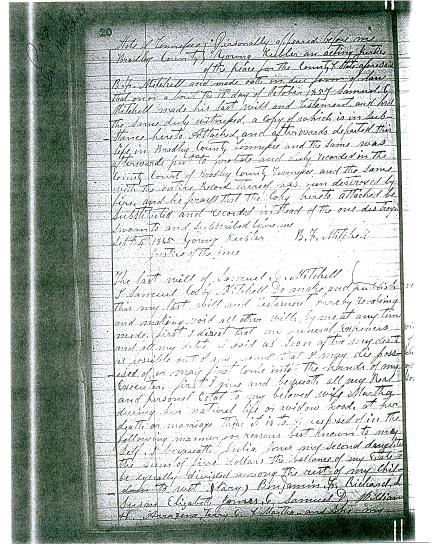 20
State of Tennessee Personally appeared before me
Bradley County Young Keibler an acting justice
of the peace for the County & State aforesaid
B.F. Mitchell and made oath in due form of law
that on or about the 18th day of October Samuel C
Mitchell made his last will and testament and had
the same duly witnessed, a copy of which is in sub
stance hereto attached, and afterwards departed this
life in Bradley County Tennessee and the same was
afterwards put to probate and duly recorded in the
County Court of Bradley County Tennessee, and the same
with the entire Record thereof has been destroyed by
fire, and he prays that the Copy hereto attached be
substituted and recorded instead of the one destroyed
sworn to and subscribed before me
Sept 1865 Young Keibler B.F. Mitchell
justice of the peace
The last will of Samuel C Mitchell
I Samuel Mitchell do make and publish
this my last will and testament hereby revoking
and making void all other wills by me at any time
made. first I direct that my funeral expenses
and all my debts be paid as soon after my death
as possible out of any money that I may die poss
essed of or may first come into the hands of my
Executor, first I give and bequeath all my Real
and personal Estat to my beloved wife Martha
during her natural life or widow hood at her
death or marriage then it is to be disposed of in the
following manner for reasons best known to my
self. I bequeath Julia my second daughter
the sum of five dollars the ballance of my Estate to
be equally divided among the rest of my chil
dren to wit Mary, Benjamin F, Richard,
Susan, Elizabeth, James C, Samuel D, William
& Martha